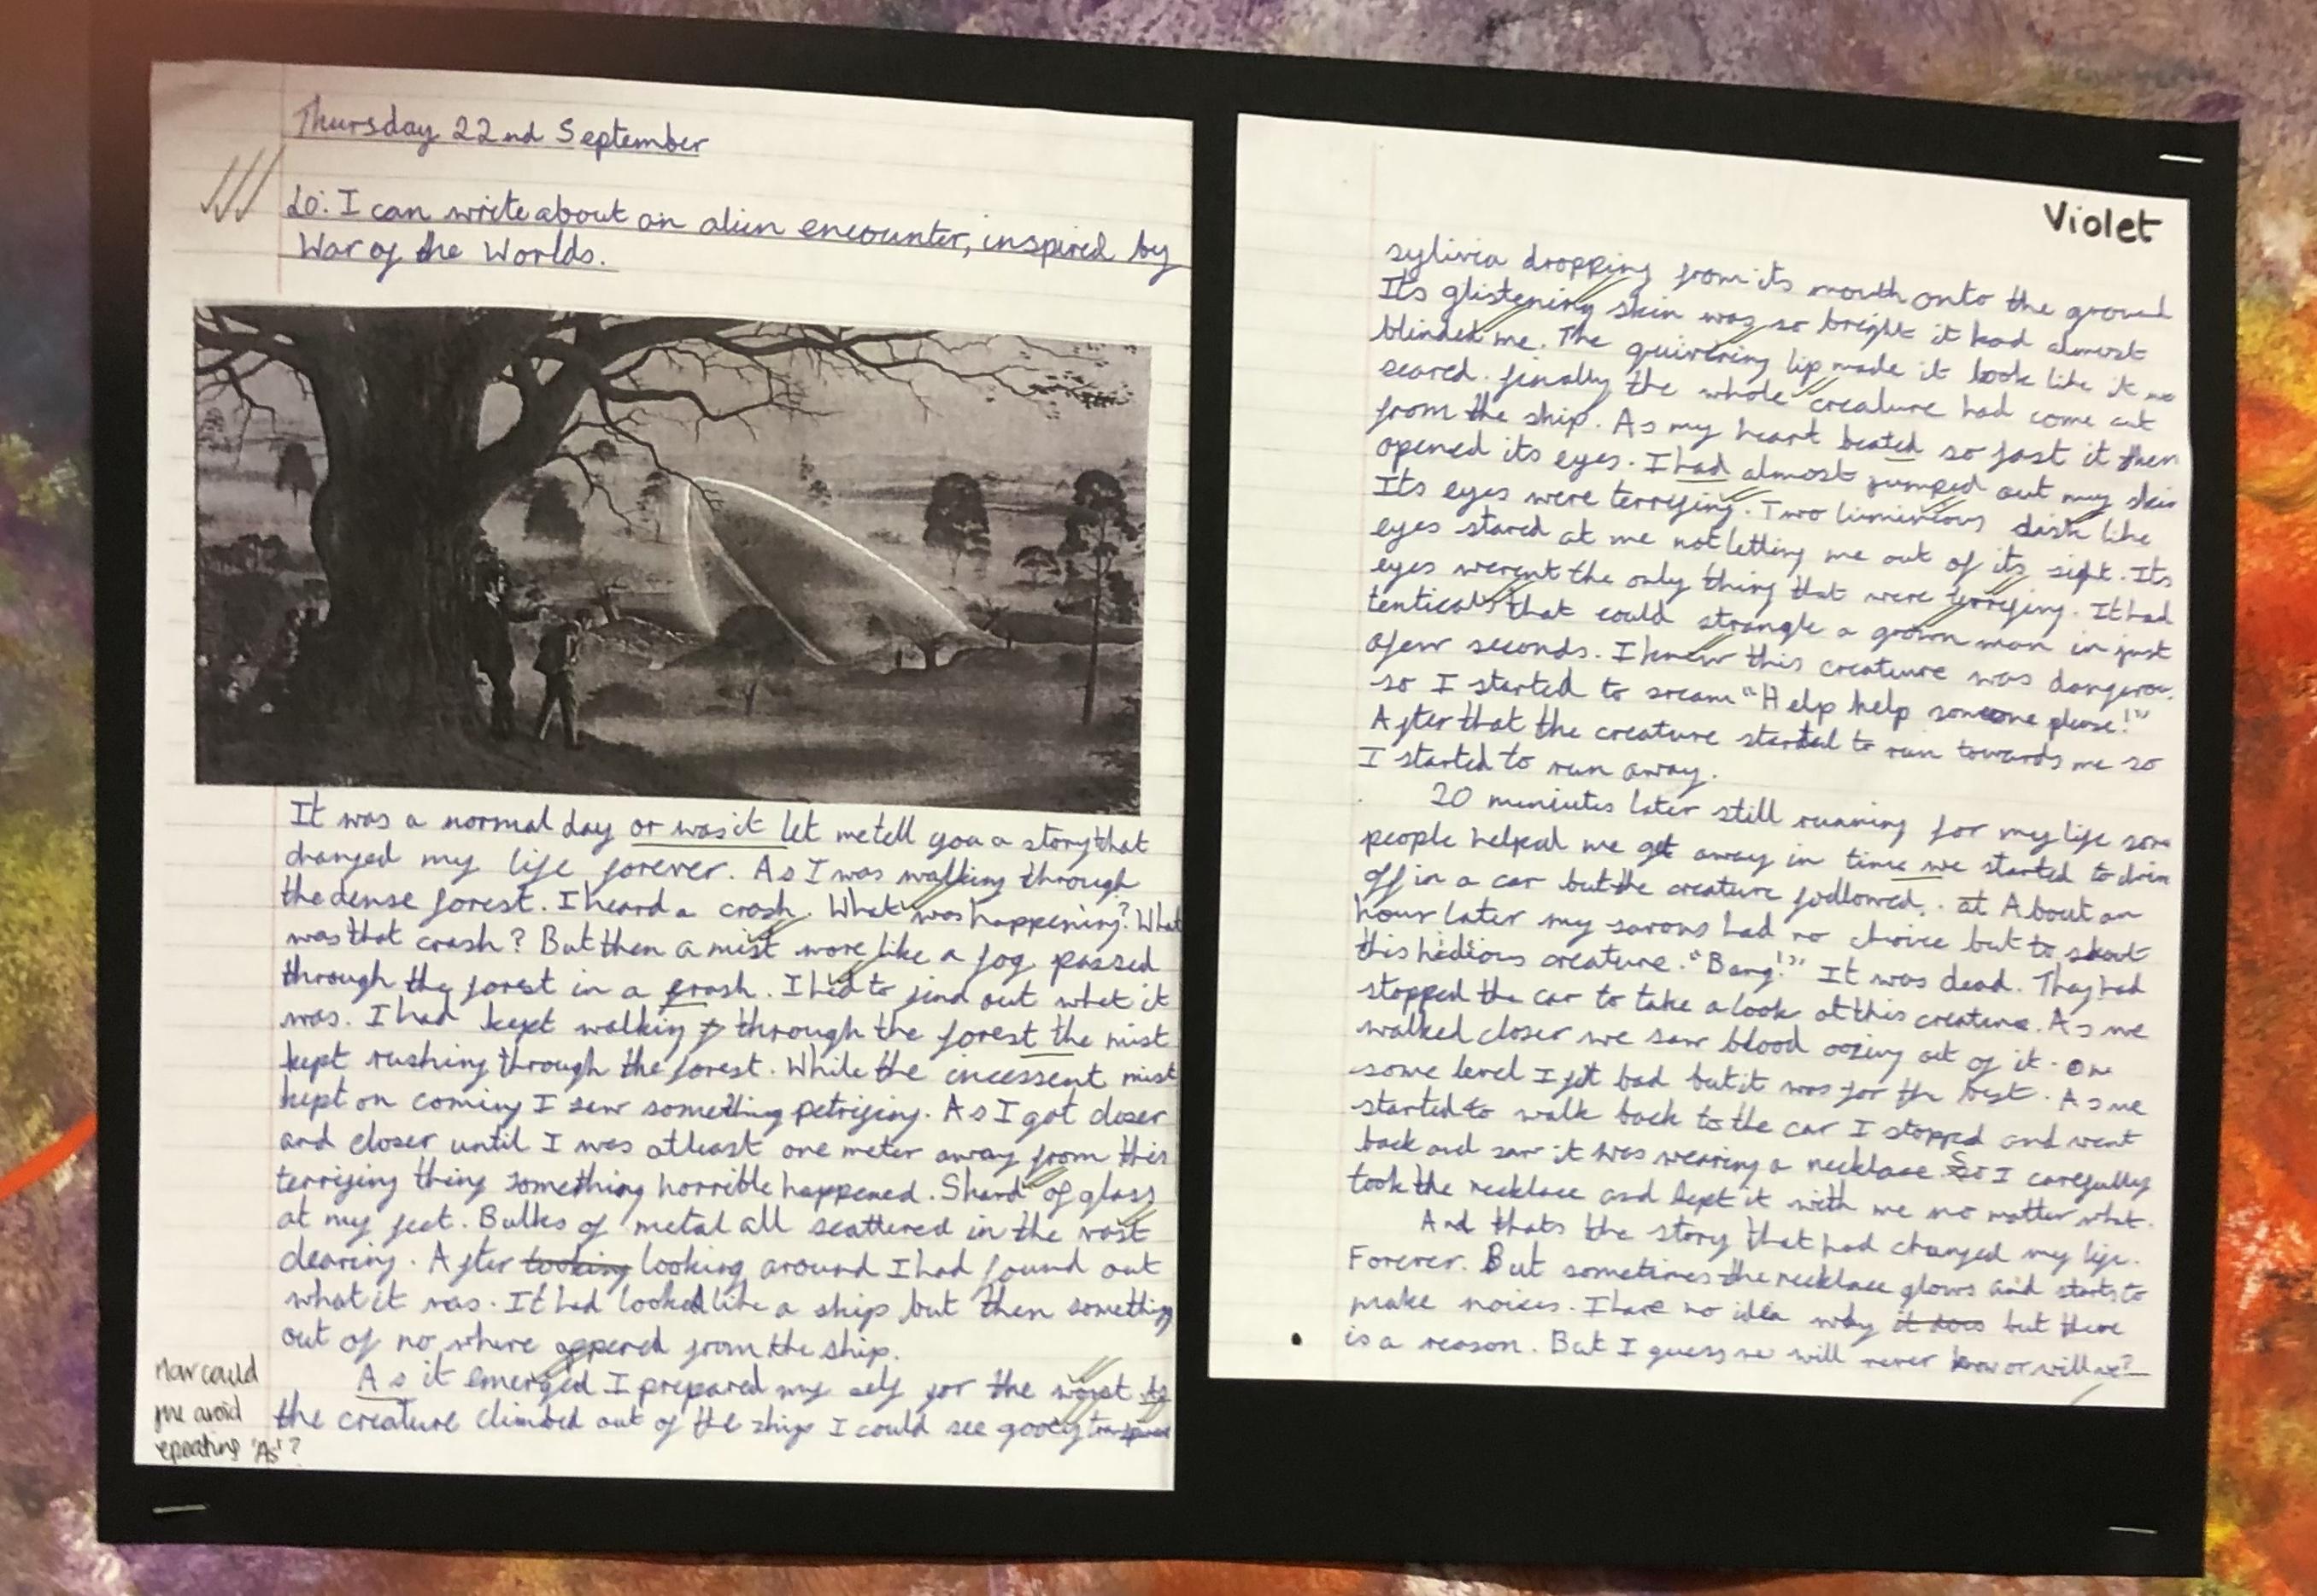 Thursday 22nd September
LO: I can write about an alien encounter, inspired by
War of the Worlds.
It was a normal day or was it let me tell you a story that
changed my life forever. As I was walking through
the dense forest. I heard a crash. What was happening? What
was that crash? But then a mist more like a fog passed
through the forest in a grash. I had to find out what it
was. I had kept walking through the forest the mist
kept rushing through the forest. While the incessent mist
kept on coming I saw something petrifing. As I got closer
and closer until I was atleast one meter away from this
terrifing thing something horrible happened. Shard of glass
at my feet. Bulks of metal all scattered in the vast
clearing. After looking looking around I had found out
what it was. It had looked like a ship but then something
out of no where appered from the ship.
As it emerged I prepared my self for the worst As
the creature climbed out of the ship I could see gooey
How could
we avoid
repeating 'As'?
Violet
sylivia dropping from its mouth onto the ground
Its glistening skin was so bright it had almost
blinded me. The quivering lip made it look like it
scared. finally the whole creature had come out
from the ship. As my heart beated so fast it then
opened its eyes. I had almost jumped out my skin
Its eyes were terrifing. Two luminious disk like
eyes stared at me not letting me out of its sight. Its
eyes werent the only thing that were terrifing. It had
tenticals that could strangle a grown man in just
a few seconds. I knew this creature was
so I started to sream "Help help someone please!"
After that the creature started to run towards me so
I started to run away.
20 meniutes later still running for my life
people helped me get away in time we started to
off in a car but the creature followed. at About an
hour later my sarons had no choice but to shoot
this hidious creature. "Bang!" It was dead. They had
stopped the car to take a look at this creature. As we
walked closer we saw blood oozing out of it. On
some level I felt bad but it was for the best. As we
started to walk back to the car I stopped and went
back and saw it was wearing a necklace. So I carefully
took the necklace and kept it with me no matter what.
And thats the story that had changed my life.
Forever. But sometimes the necklace glows and starts to
make noises. I have no idea why it does but there
is a reason. But I guess we will never know or will we?